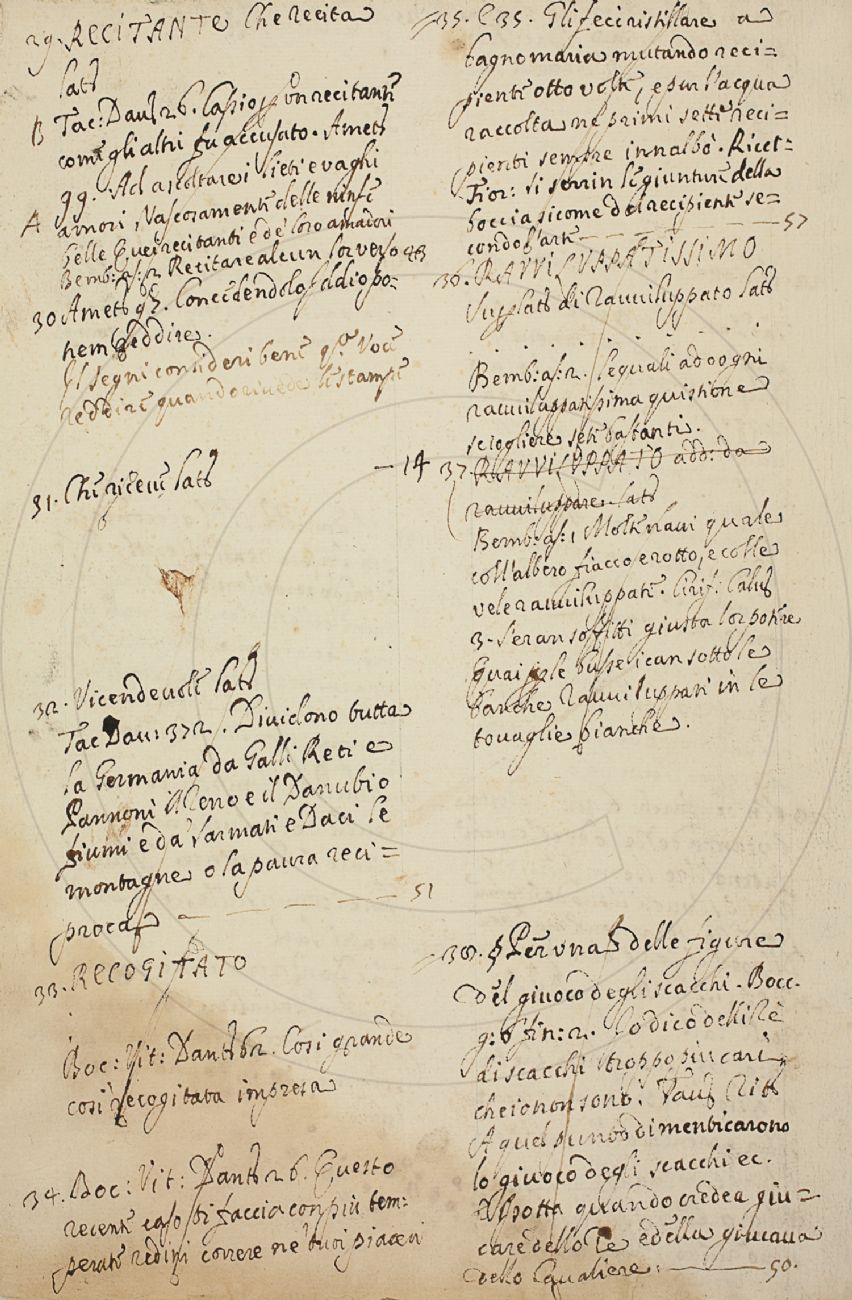 29. RECITANTE Che recita
Lat.
B Tac: Dav: 26. Cassio, un recitante
come gli altri fu accusato. Amet.
A 99. Ad ascoltare i lieti e vaghi
amori,
belle Quei recitanti e de' loro amadori
Bemb: as: 2. Recitare alcun lor verso 48
30 Amet. 95. Concedendolo
nemb reddire.
Il segni consideri bene
reddire quando rivede le stampe
31. Che riceve Lat.
32. Vicendevole Lat.
Tac Dav: 372. Dividono tutta
la Germania da Galli Reti e
Pannoni il Reno e il Danubio
fiumi e da' Sarmati e Daci le
montagne o la paura reci=
proca 51
33. RECOGITATO
Boc: Vit: Dant. 62. Così grande
così recogitata impresa
34. Boc: Vit: Dant. 26. Questo
recente caso ti faccia con più tem:
perate redini correre ne' tuoi piaceri
35. E 35. Gli feci ristillare a
bagnomaria mutando reci=
piente otto volte, e pur l'acqua
raccolta ne primi sette reci=
pienti sempre innalbò. Ricet:
Fior: Si serrin le giunture della
boccia sicome del recipiente se=
condo l'arte 57
36. RAVVILUPPATISSIMO
Superlat. di Ravviluppato Lat.
Bemb: as: 2. le quali ad ogni
ravviluppatissima quistione
sciogliere sete bastanti.
14 37. RAVVILUPPATO add: da
ravviluppare. Lat.
Bemb: as: 1, Molte navi quale
coll'albero fiacco e rotto, e colle
vele ravviluppate. Cirif: Calv.
3. S'eran soffitti giusta lor potere
Quai per le busse ican sotto le
banche Ravviluppari in le
tovaglie bianche.
38. § Per una delle figure
del giuoco degli scacchi. Bocc.
g: 6 fin: 2. Io dico delli Re
di scacchi troppo più cari
che io non sono.
A quel punto dimenticarono
lo giuoco degli scacchi ec.
quando credea giu=
care dello Re ed ella giucava
dello Cavaliere: 50.